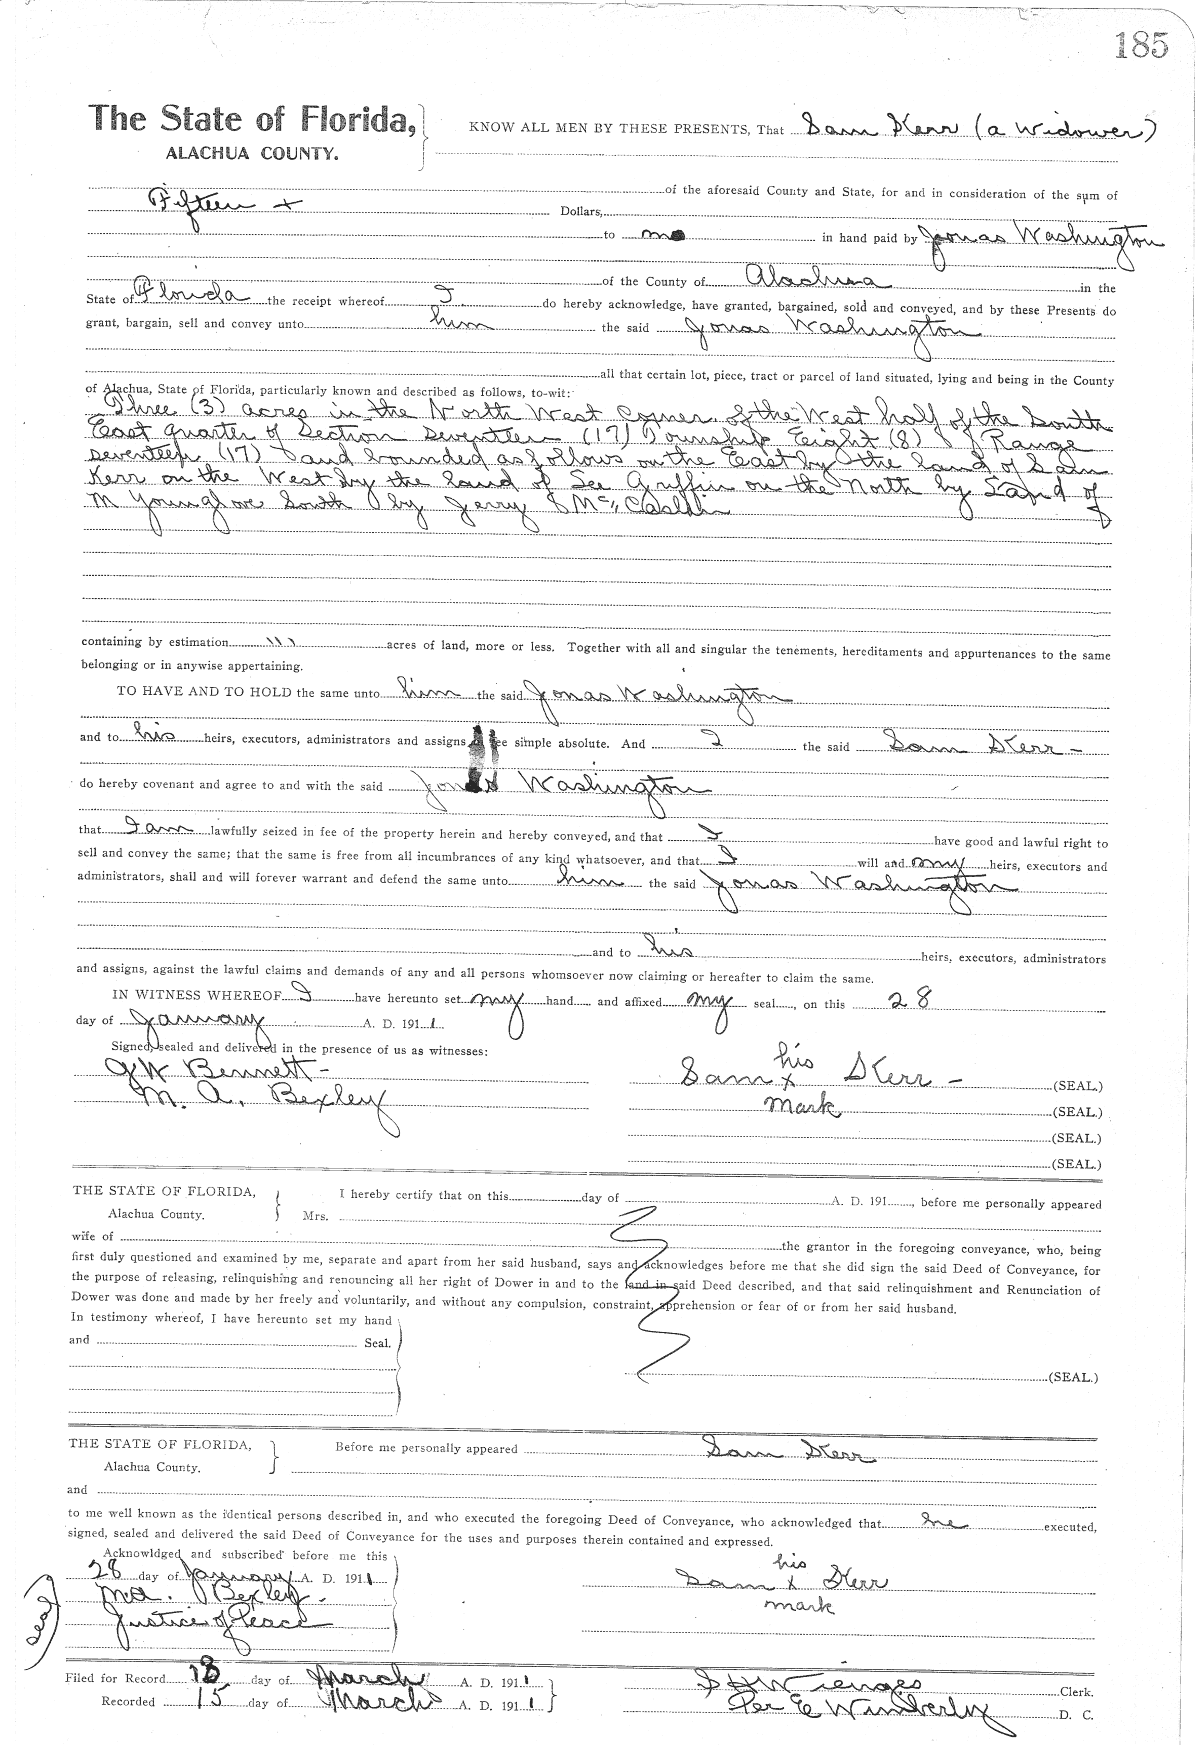 185
The State of Florida, KNOW ALL MEN BY THESE PRESENTS, That Sam Kerr (a Widower)
ALACHUA COUNTY.
of the aforesaid County and State, for and in consideration of the sum of
Fifteen + Dollars,
to me in hand paid by Jonas Washington
of the County of Alachua in the
State of Florida the receipt whereof I do hereby acknowledge, have granted, bargained, sold and conveyed, and by these Presents do
grant, bargain, sell and convey unto him the said Jonas Washington
all that certain lot, piece, tract or parcel of land situated, lying and being in the County
of Alachua, State of Florida, particularly known and described as follows, to-wit:
Three (3) acres in the North West Corner of the West half of the South
East quarter of Section Seventeen (17) Township Eight (8) S of Range
Seventeen (17) and bounded as follows on the East by the land of Sam
Kerr on the West by the land of See Griffin on the North by Land of
M Younglove South by Jerry Mc Caslin
containing by estimation acres of land, more or less. Together with all and singular the tenements, hereditaments and appurtenances to the same
belonging or in anywise appertaining.
TO HAVE AND TO HOLD the same unto him the said Jonas Washington
and to his heirs, executors, administrators and assigns, fee simple absolute. And I the said Sam Kerr -
do hereby covenant and agree to and with the said Jonas Washington
that I am lawfully seized in fee of the property herein and hereby conveyed, and that I have good and lawful right to
sell and convey the same; that the same is free from all incumbrances of any kind whatsoever, and that I will and my heirs, executors and
administrators, shall and will forever warrant and defend the same unto him the said Jonas Washington
and to his heirs, executors, administrators
and assigns, against the lawful claims and demands of any and all persons whomsoever now claiming or hereafter to claim the same.
IN WITNESS WHEREOF I have hereunto set my hand and affixed my seal, on this 28
day of January A. D. 1911.
Signed, sealed and delivered in the presence of us as witnesses:
GW Bennett -
M. A. Bexley
Sam his x mark Kerr - (SEAL.)
(SEAL.)
(SEAL.)
(SEAL.)
THE STATE OF FLORIDA, I hereby certify that on this day of A. D. 191, before me personally appeared
Alachua County. Mrs.
wife of the grantor in the foregoing conveyance, who, being
first duly questioned and examined by me, separate and apart from her said husband, says and acknowledges before me that she did sign the said Deed of Conveyance, for
the purpose of releasing, relinquishing and renouncing all her right of Dower in and to the land in said Deed described, and that said relinquishment and Renunciation of
Dower was done and made by her freely and voluntarily, and without any compulsion, constraint, apprehension or fear of or from her said husband.
In testimony whereof, I have hereunto set my hand
and Seal.
(SEAL.)
THE STATE OF FLORIDA, Before me personally appeared Sam Kerr
Alachua County.
and
to me well known as the identical persons described in, and who executed the foregoing Deed of Conveyance, who acknowledged that he executed,
signed, sealed and delivered the said Deed of Conveyance for the uses and purposes therein contained and expressed.
Acknowldged and subscribed before me this
28 day of January A. D. 1911
M.A. Bexley.
Justice of Peace
(Seal)
Sam his x mark Kerr
Filed for Record 13 day of March A. D. 1911 S H Wienges Clerk.
Recorded 15 day of March A. D. 1911 Per E Wimberly D. C.